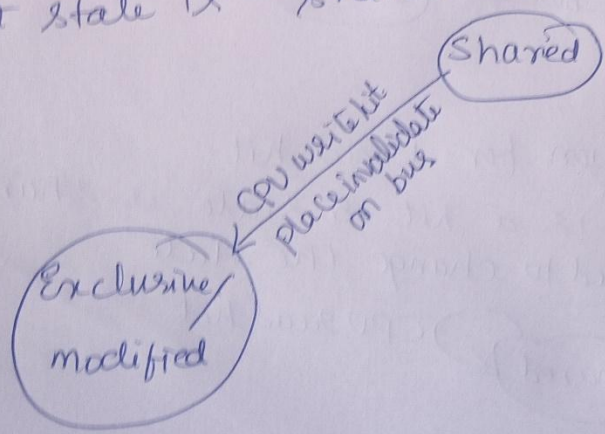 state is
Shared
CPU write hit
Place invalidate
on bus
Exclusive/
modified